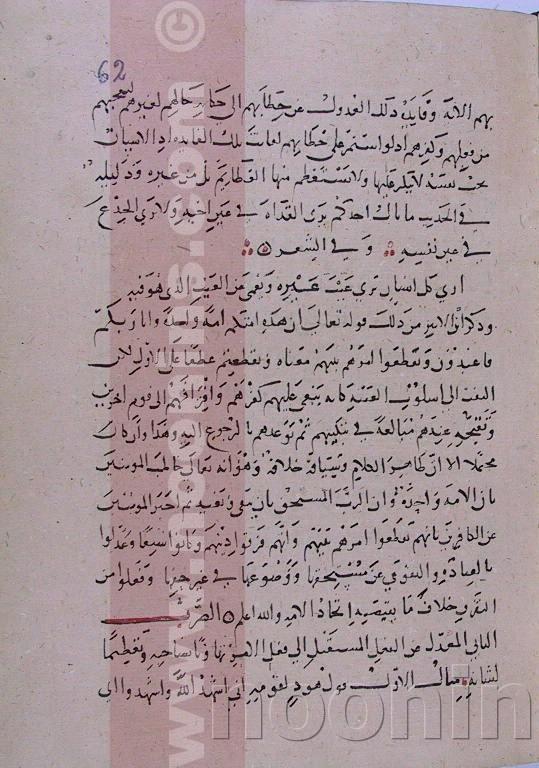 62
بهم الآية وفايدة ذلك العدول عن خطابهم الى حكاية حالهم لغيرهم لتعجبهم
من فعلهم وكفرهم اذ لو استمر على خطابهم لفات تلك الفايدة اذ الانسان
يحب نفسه ولا ينكر عليها ولا يستعظم منها القبايح بل من غيره ودليله
في الحديث ما بال احدكم يرى القذاة في عين اخيه ولا يرى الجذع
في عين نفسه وفي الشعر
ارى كل انسان يرى عيب غيره ويعمى عن العيب الذي هو فيه
وذكر ابن الاثير من ذلك قوله تعالى ان هذه امتكم امة واحدة وانا ربكم
فاعبدون وتقطعوا امرهم بينهم معناه وتقطعتم عطفا على الاول لان
الى اسلوب الغيبة كانه ينعى عليهم الى قوم اخرين
ويقبحه عندهم مبالغة في ثم توعدهم بالرجوع اليه وهذا وان كان
محتملا الا ان ظاهر الكلام وسياقه خلافه وهو انه تعالى خاطب المومنين
بان الامة واحدة وان الرب المستحق بان يتقى ويعبد ثم اخبر المومنين
عن الكافرين بانهم تقطعوا امرهم بينهم وانهم فرقوا دينهم وكانوا شيعا وعدلوا
بالعبادة والتقوى عن مستحقها ووضوعها في غير حقها وفعلوا من
التفرق خلاف ما يقتضيه اتحاد الامة والله اعلم الضرب
الثاني المعدل عن الفعل المستقبل الى فعل الامر تهاونا بصاحبه وتعظيما
لشانه مثال الاول قول هود لقومه اني اشهد الله واشهدوا اني
www.noonin.com ©
noonin